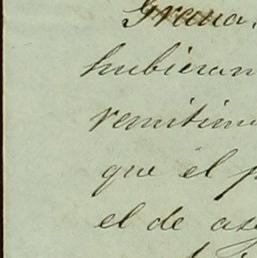 Grana.
hubieran
remitim
que el p
el de as